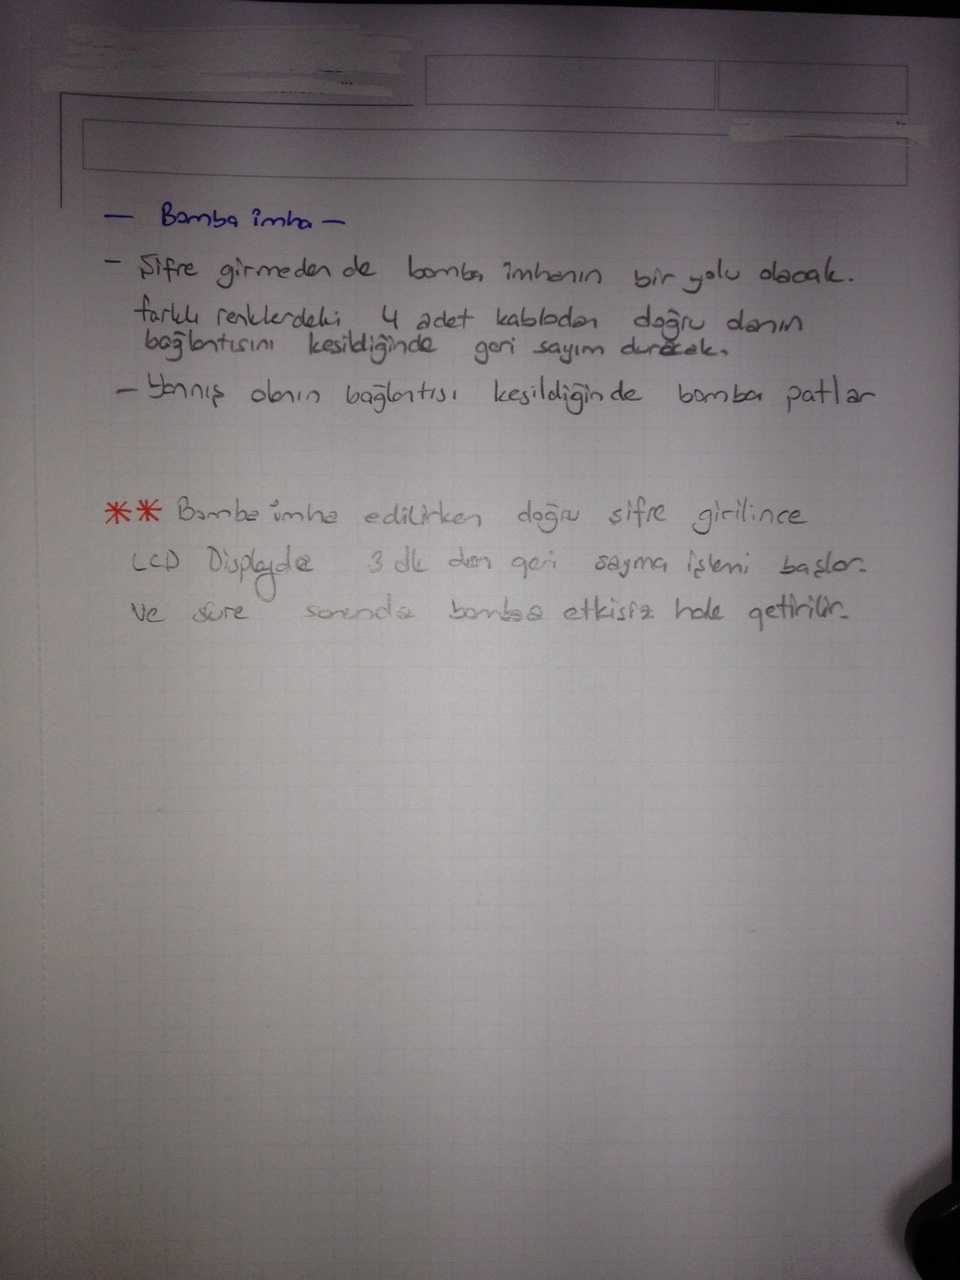 — Bomba imha —
- Şifre girmeden de bomba imhanın bir yolu olacak.
farklı renklerdeki 4 adet kablodan doğru olanın
bağlantısını kesildiğinde geri sayım duracak.
- Yannış olanın bağlantısı kesildiğinde bomba patlar
** Bomba imha edilirken doğru şifre girilince
LCD Displayde 3 dk dan geri sayma işlemi başlar.
ve süre sonunda bomba etkisiz hale getirilir.